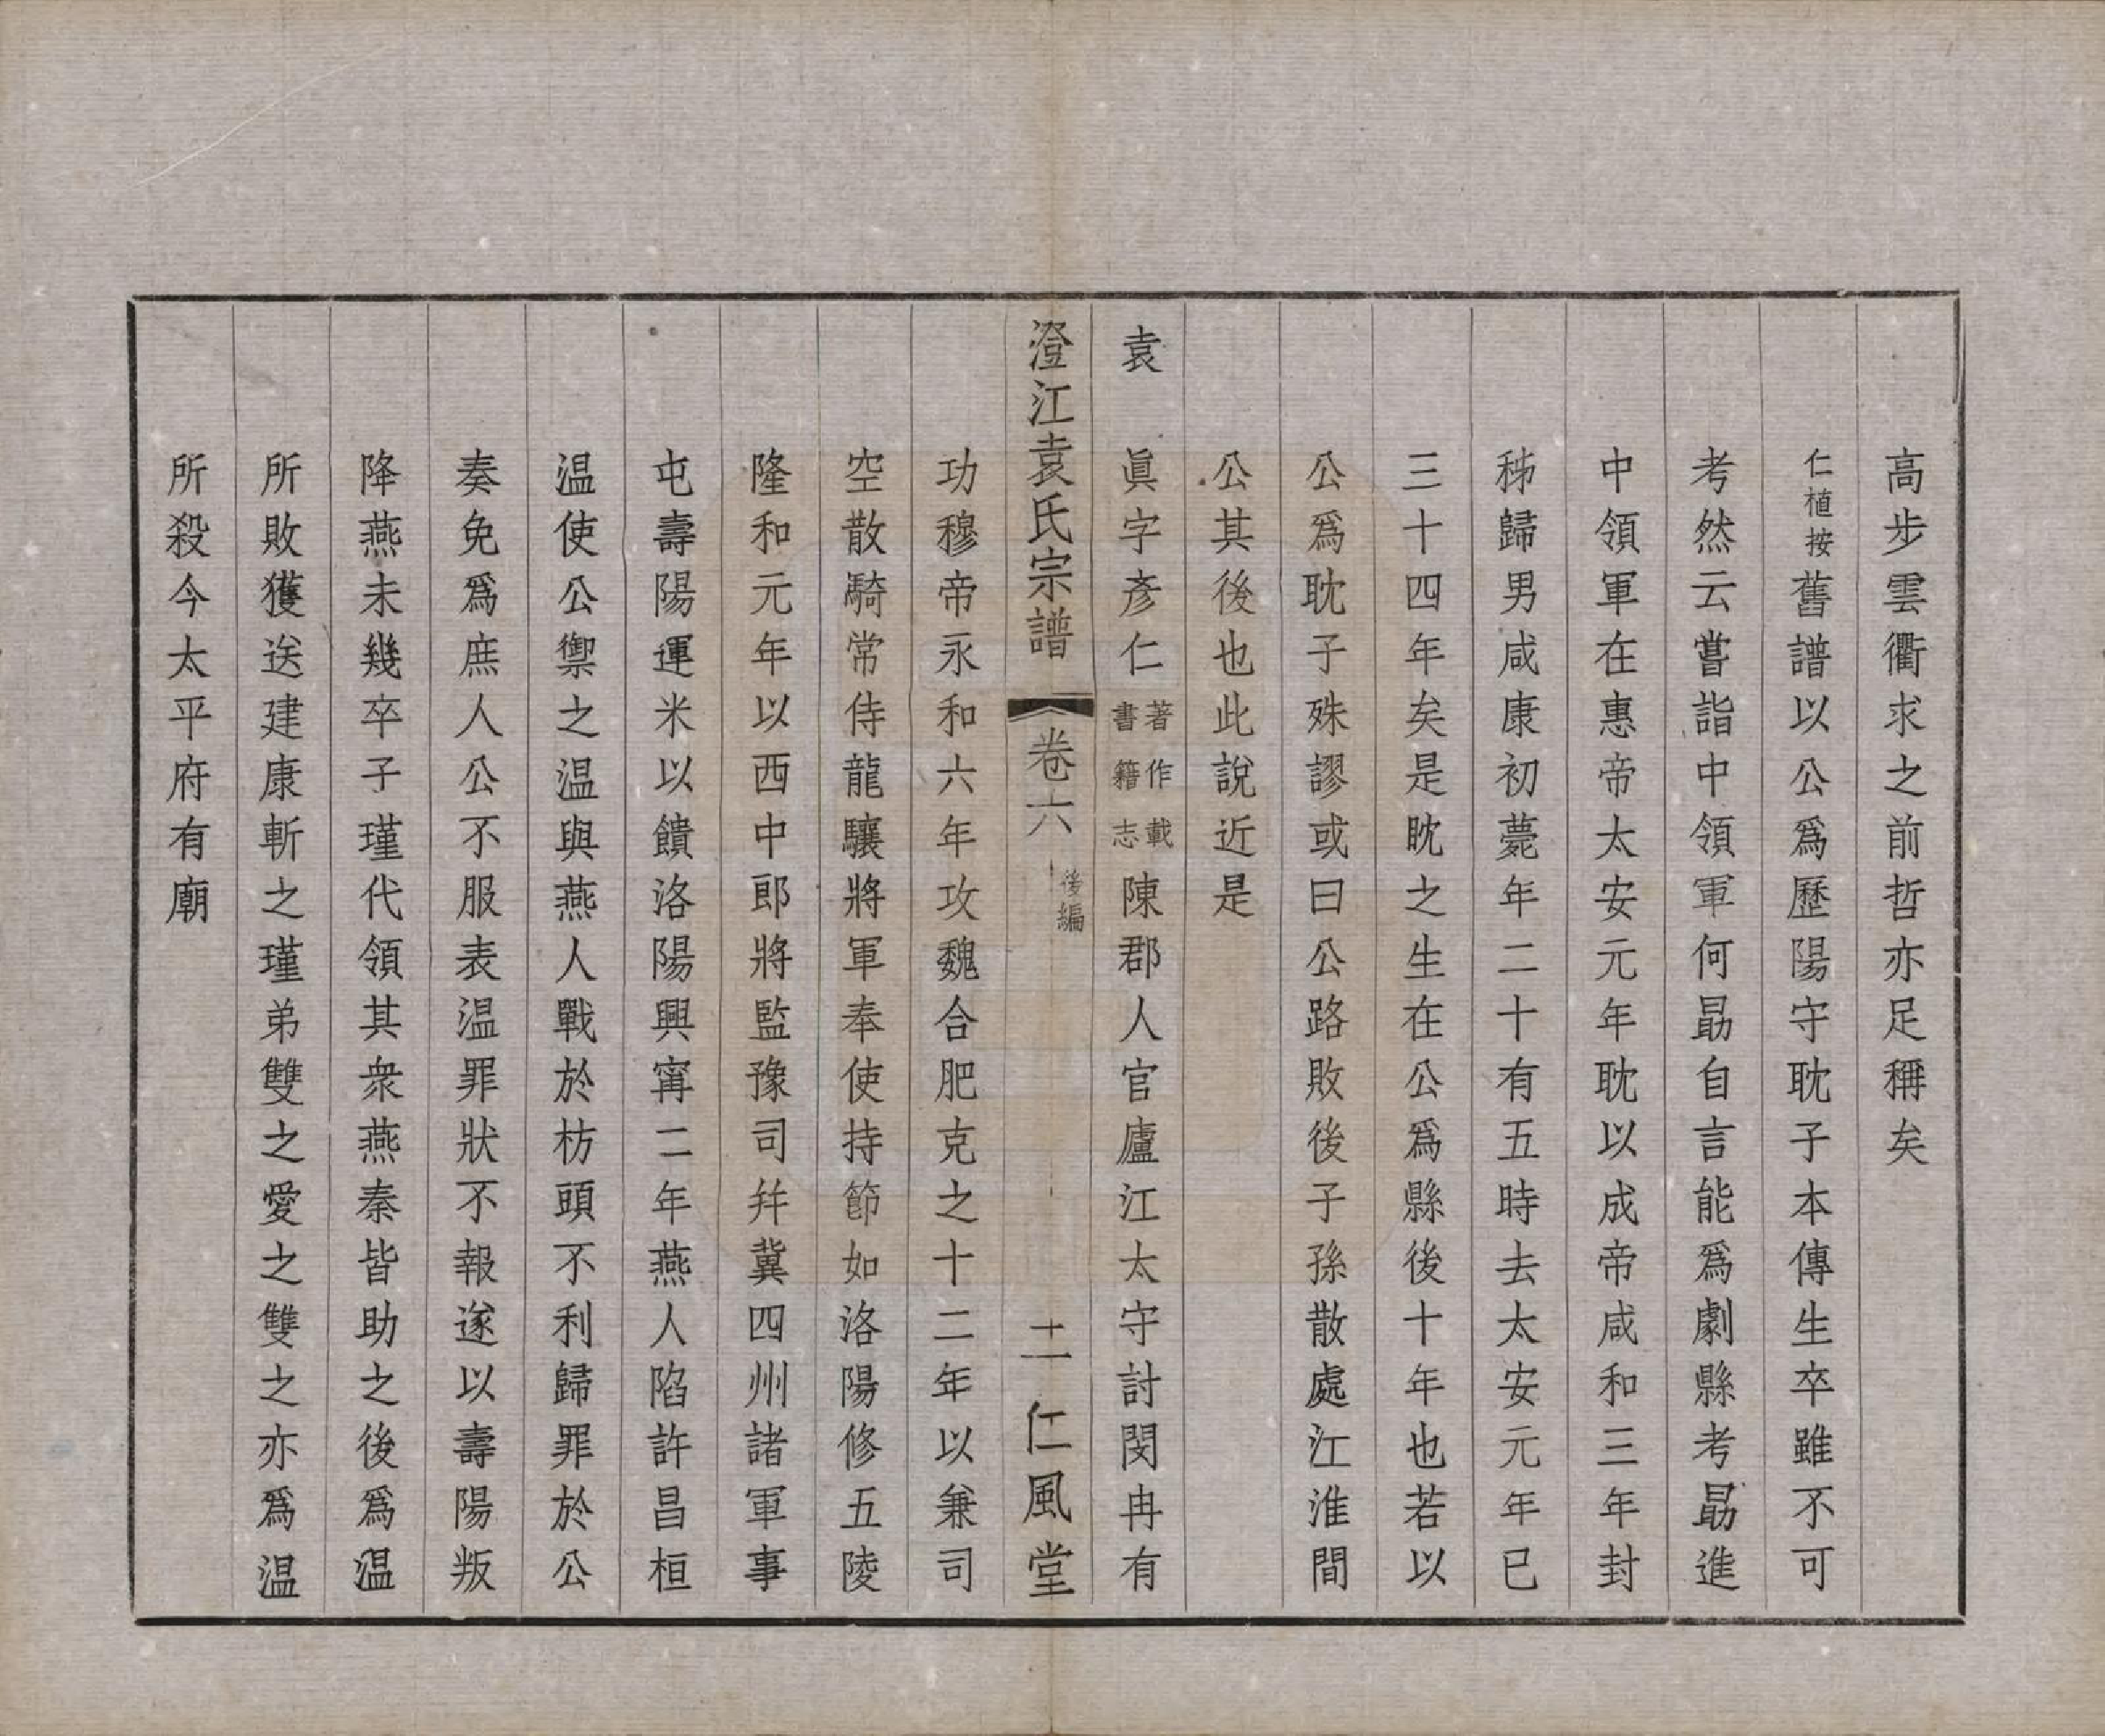 高步雲衢求之前哲亦足稱矣
仁植按舊譜以公爲歷陽守耽子本傳生卒雖不可
考然云嘗詣中領軍何勗自言能爲劇縣考勗進
中領軍在惠帝太安元年耽以成帝咸和三年封
秭歸男咸康初薨年二十有五時去太安元年已
三十四年矣是眈之生在公爲縣後十年也若以
公爲耽子殊謬或曰公路敗後子孫散處江淮間
公其後也此說近是
袁眞字彥仁著作載書籍志陳郡人官廬江太守討閔冉有
澄江袁氏宗譜 卷六 後編 十二 仁風堂
功穆帝永和六年攻魏合肥克之十二年以兼司
空散騎常侍龍驤將軍奉使持節如洛陽修五陵
隆和元年以西中郎將監豫司幷冀四州諸軍事
屯壽陽運米以饋洛陽興甯二年燕人陷許昌桓
温使公禦之温與燕人戰於枋頭不利歸罪於公
奏免爲庶人公不服表温罪狀不報遂以壽陽叛
降燕未幾卒子瑾代領其衆燕秦皆助之後爲温
所敗獲送建康斬之瑾弟雙之愛之雙之亦爲温
所殺今太平府有廟